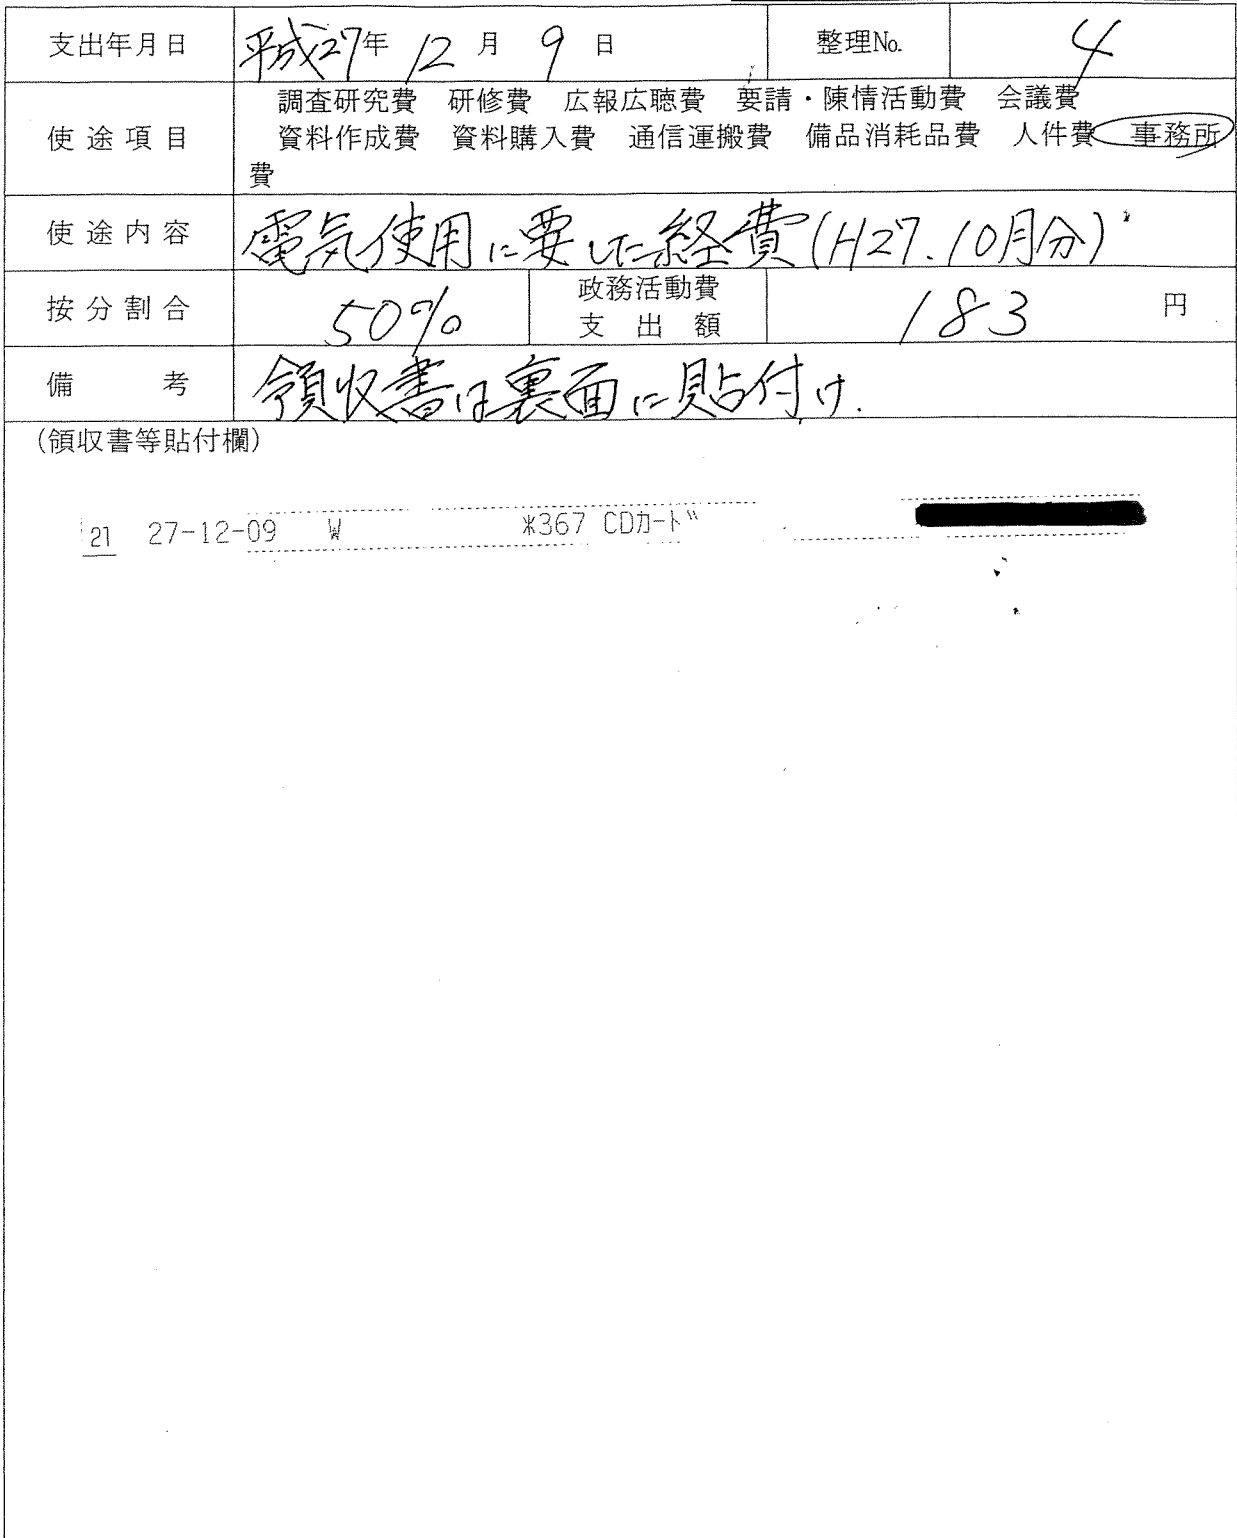 支出年月日 平成27年 12月 9日 整理No. 4
調査研究費 研修費 広報広聴費 要請・陳情活動費 会議費
使途項目 資料作成費 資料購入費 通信運搬費 備品消耗品費 人件費 事務所
費
使途内容 電気使用に要した経費(H27.10月分)
按分割合 50% 政務活動費支出額 183 円
備考 領収書は裏面に貼付け.
(領収書等貼付欄)
21 27-12-09 W *367 CDカード